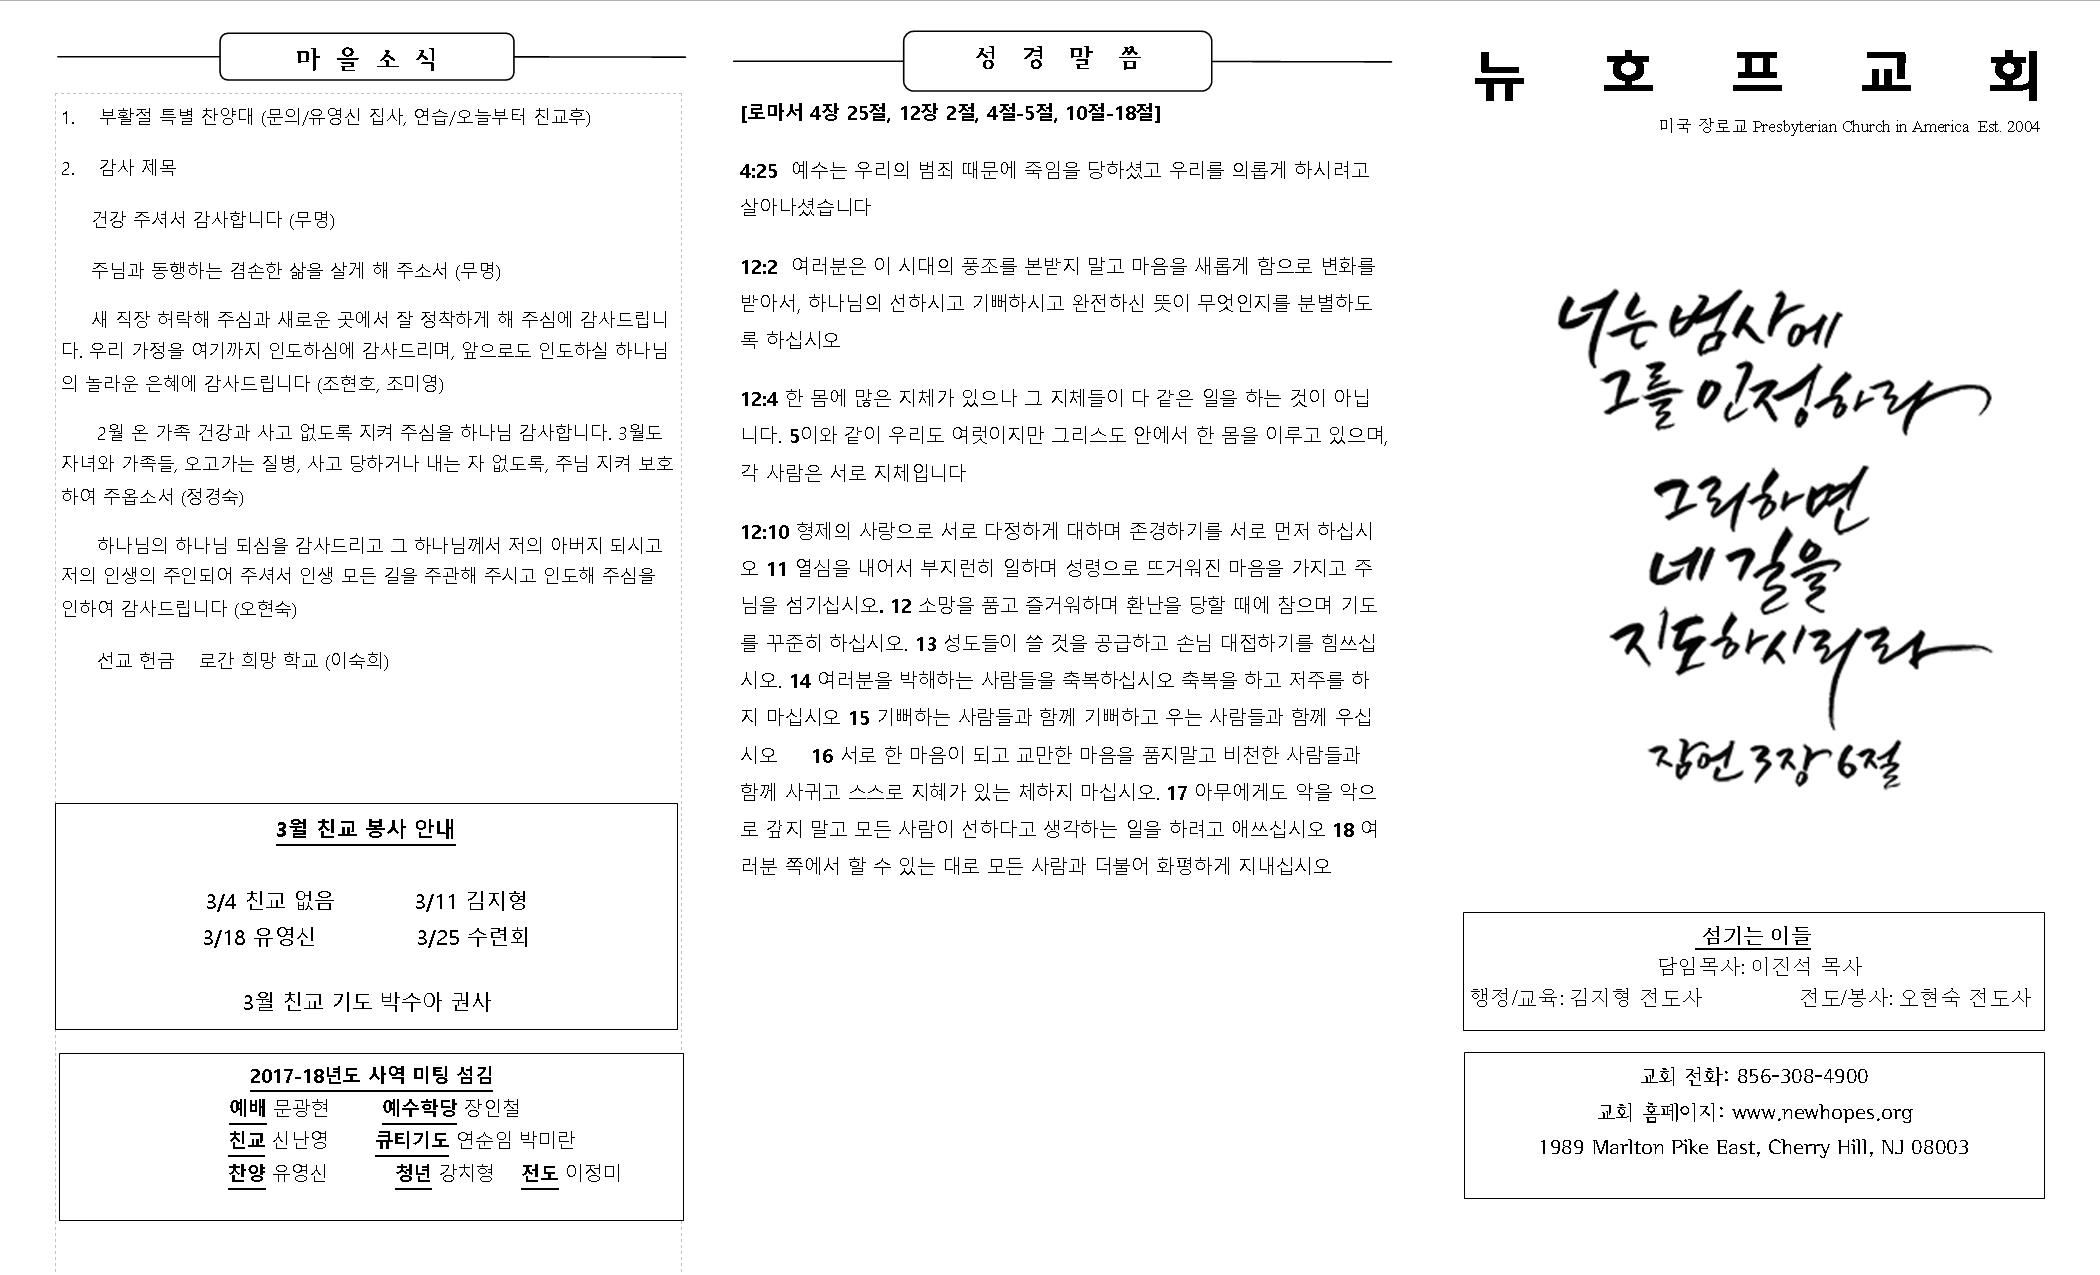 마 을 소 식
1. 부활절 특별 찬양대 (문의/유영신 집사, 연습/오늘부터 친교후)
2. 감사 제목
건강 주셔서 감사합니다 (무명)
주님과 동행하는 겸손한 삶을 살게 해 주소서 (무명)
새 직장 허락해 주심과 새로운 곳에서 잘 정착하게 해 주심에 감사드립니
다. 우리 가정을 여기까지 인도하심에 감사드리며, 앞으로도 인도하실 하나님
의 놀라운 은혜에 감사드립니다 (조현호, 조미영)
2월 온 가족 건강과 사고 없도록 지켜 주심을 하나님 감사합니다. 3월도
자녀와 가족들, 오고가는 질병, 사고 당하거나 내는 자 없도록, 주님 지켜 보호
하여 주옵소서 (정경숙)
하나님의 하나님 되심을 감사드리고 그 하나님께서 저의 아버지 되시고
저의 인생의 주인되어 주셔서 인생 모든 길을 주관해 주시고 인도해 주심을
인하여 감사드립니다 (오현숙)
선교 헌금 로간 희망 학교 (이숙희)
3월 친교 봉사 안내
3/4 친교 없음 3/11 김지형
3/18 유영신 3/25 수련회
3월 친교 기도 박수아 권사
2017-18년도 사역 미팅 섬김
예배 문광현 예수학당 장인철
친교 신난영 큐티기도 연순임 박미란
찬양 유영신 청년 강치형 전도 이정미
성 경 말 씀
[로마서 4장 25절, 12장 2절, 4절-5절, 10절-18절]
4:25 예수는 우리의 범죄 때문에 죽임을 당하셨고 우리를 의롭게 하시려고
살아나셨습니다
12:2 여러분은 이 시대의 풍조를 본받지 말고 마음을 새롭게 함으로 변화를
받아서, 하나님의 선하시고 기뻐하시고 완전하신 뜻이 무엇인지를 분별하도
록 하십시오
12:4 한 몸에 많은 지체가 있으나 그 지체들이 다 같은 일을 하는 것이 아닙
니다. 5이와 같이 우리도 여럿이지만 그리스도 안에서 한 몸을 이루고 있으며,
각 사람은 서로 지체입니다
12:10 형제의 사랑으로 서로 다정하게 대하며 존경하기를 서로 먼저 하십시
오 11 열심을 내어서 부지런히 일하며 성령으로 뜨거워진 마음을 가지고 주
님을 섬기십시오. 12 소망을 품고 즐거워하며 환난을 당할 때에 참으며 기도
를 꾸준히 하십시오. 13 성도들이 쓸 것을 공급하고 손님 대접하기를 힘쓰십
시오. 14 여러분을 박해하는 사람들을 축복하십시오 축복을 하고 저주를 하
지 마십시오 15 기뻐하는 사람들과 함께 기뻐하고 우는 사람들과 함께 우십
시오 16 서로 한 마음이 되고 교만한 마음을 품지말고 비천한 사람들과
함께 사귀고 스스로 지혜가 있는 체하지 마십시오. 17 아무에게도 악을 악으
로 갚지 말고 모든 사람이 선하다고 생각하는 일을 하려고 애쓰십시오 18 여
러분 쪽에서 할 수 있는 대로 모든 사람과 더불어 화평하게 지내십시오
뉴 호 프 교 회
미국 장로교 Presbyterian Church in America Est. 2004
너는 범사에
그를 인정하라
그리하면
네 길을
지도하시리라
잠언 3장 6절
섬기는 이들
담임목사: 이진석 목사
행정/교육: 김지형 전도사 전도/봉사: 오현숙 전도사
교회 전화: 856-308-4900
교회 홈페이지: www.newhopes.org
1989 Marlton Pike East, Cherry Hill, NJ 08003